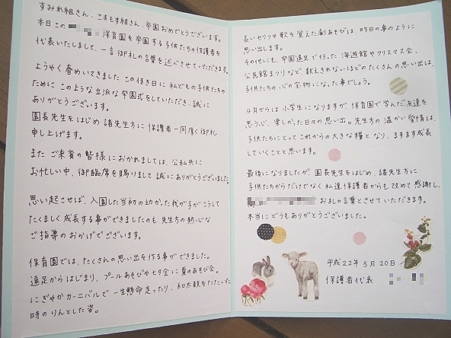 すみれ組さん、こすもす組さん、卒園おめでとうございます。
本日この保育園を卒園する子供たちや保護者を
代表いたしまして、一言御礼の言を述べさせていただきます。
ようやく春めいてきましたこの佳き日に私ども子供たちの
ためにこのような立派な卒園式をしていただき、誠に
ありがとうございます。
園長先生をはじめ諸先生方に保護者一同厚く御礼
申し上げます。
またご来賓の皆様におかれましては、公私共に
お忙しい中、御臨席を賜りまして誠にありがとうございました。
思い起こせば、入園した当初の幼かった我が子がこうして
たくましく成長する事ができましたのも先生方の熱心な
ご指導のおかげでございます。
保育園では、たくさんの思い出を作る事ができました。
遠足からはじまり、プールあそびや七夕会に夏のあそび会。
にぎやかカーニバルで一生懸命走ったり、和太鼓をたたいた
時のりんとした姿。
長いセリフや歌を覚えた劇あそびは、昨日の事のように
思い出します。
その他にも、卒園遠足で行った海遊館やクリスマス会、
公民館まつりなど、数えきれないほどのたくさんの思い出は、
子供たちの心の宝物になった事でしょう。
4月からは小学生になりますが保育園で学んだ友達を
思う心、楽しかった日々の思い出。先生方の温かい愛情は、
子供たちにとってこれからの大きな糧となり、ますます成長し
ていくことと思います。
最後になりましたが、園長先生をはじめ、諸先生方に
子供たちからだけでなく私達保護者からも改めて感謝し、
お礼の言葉とさせていただきます。
本当にどうもありがとうございました。
平成22年3月20日
保護者代表